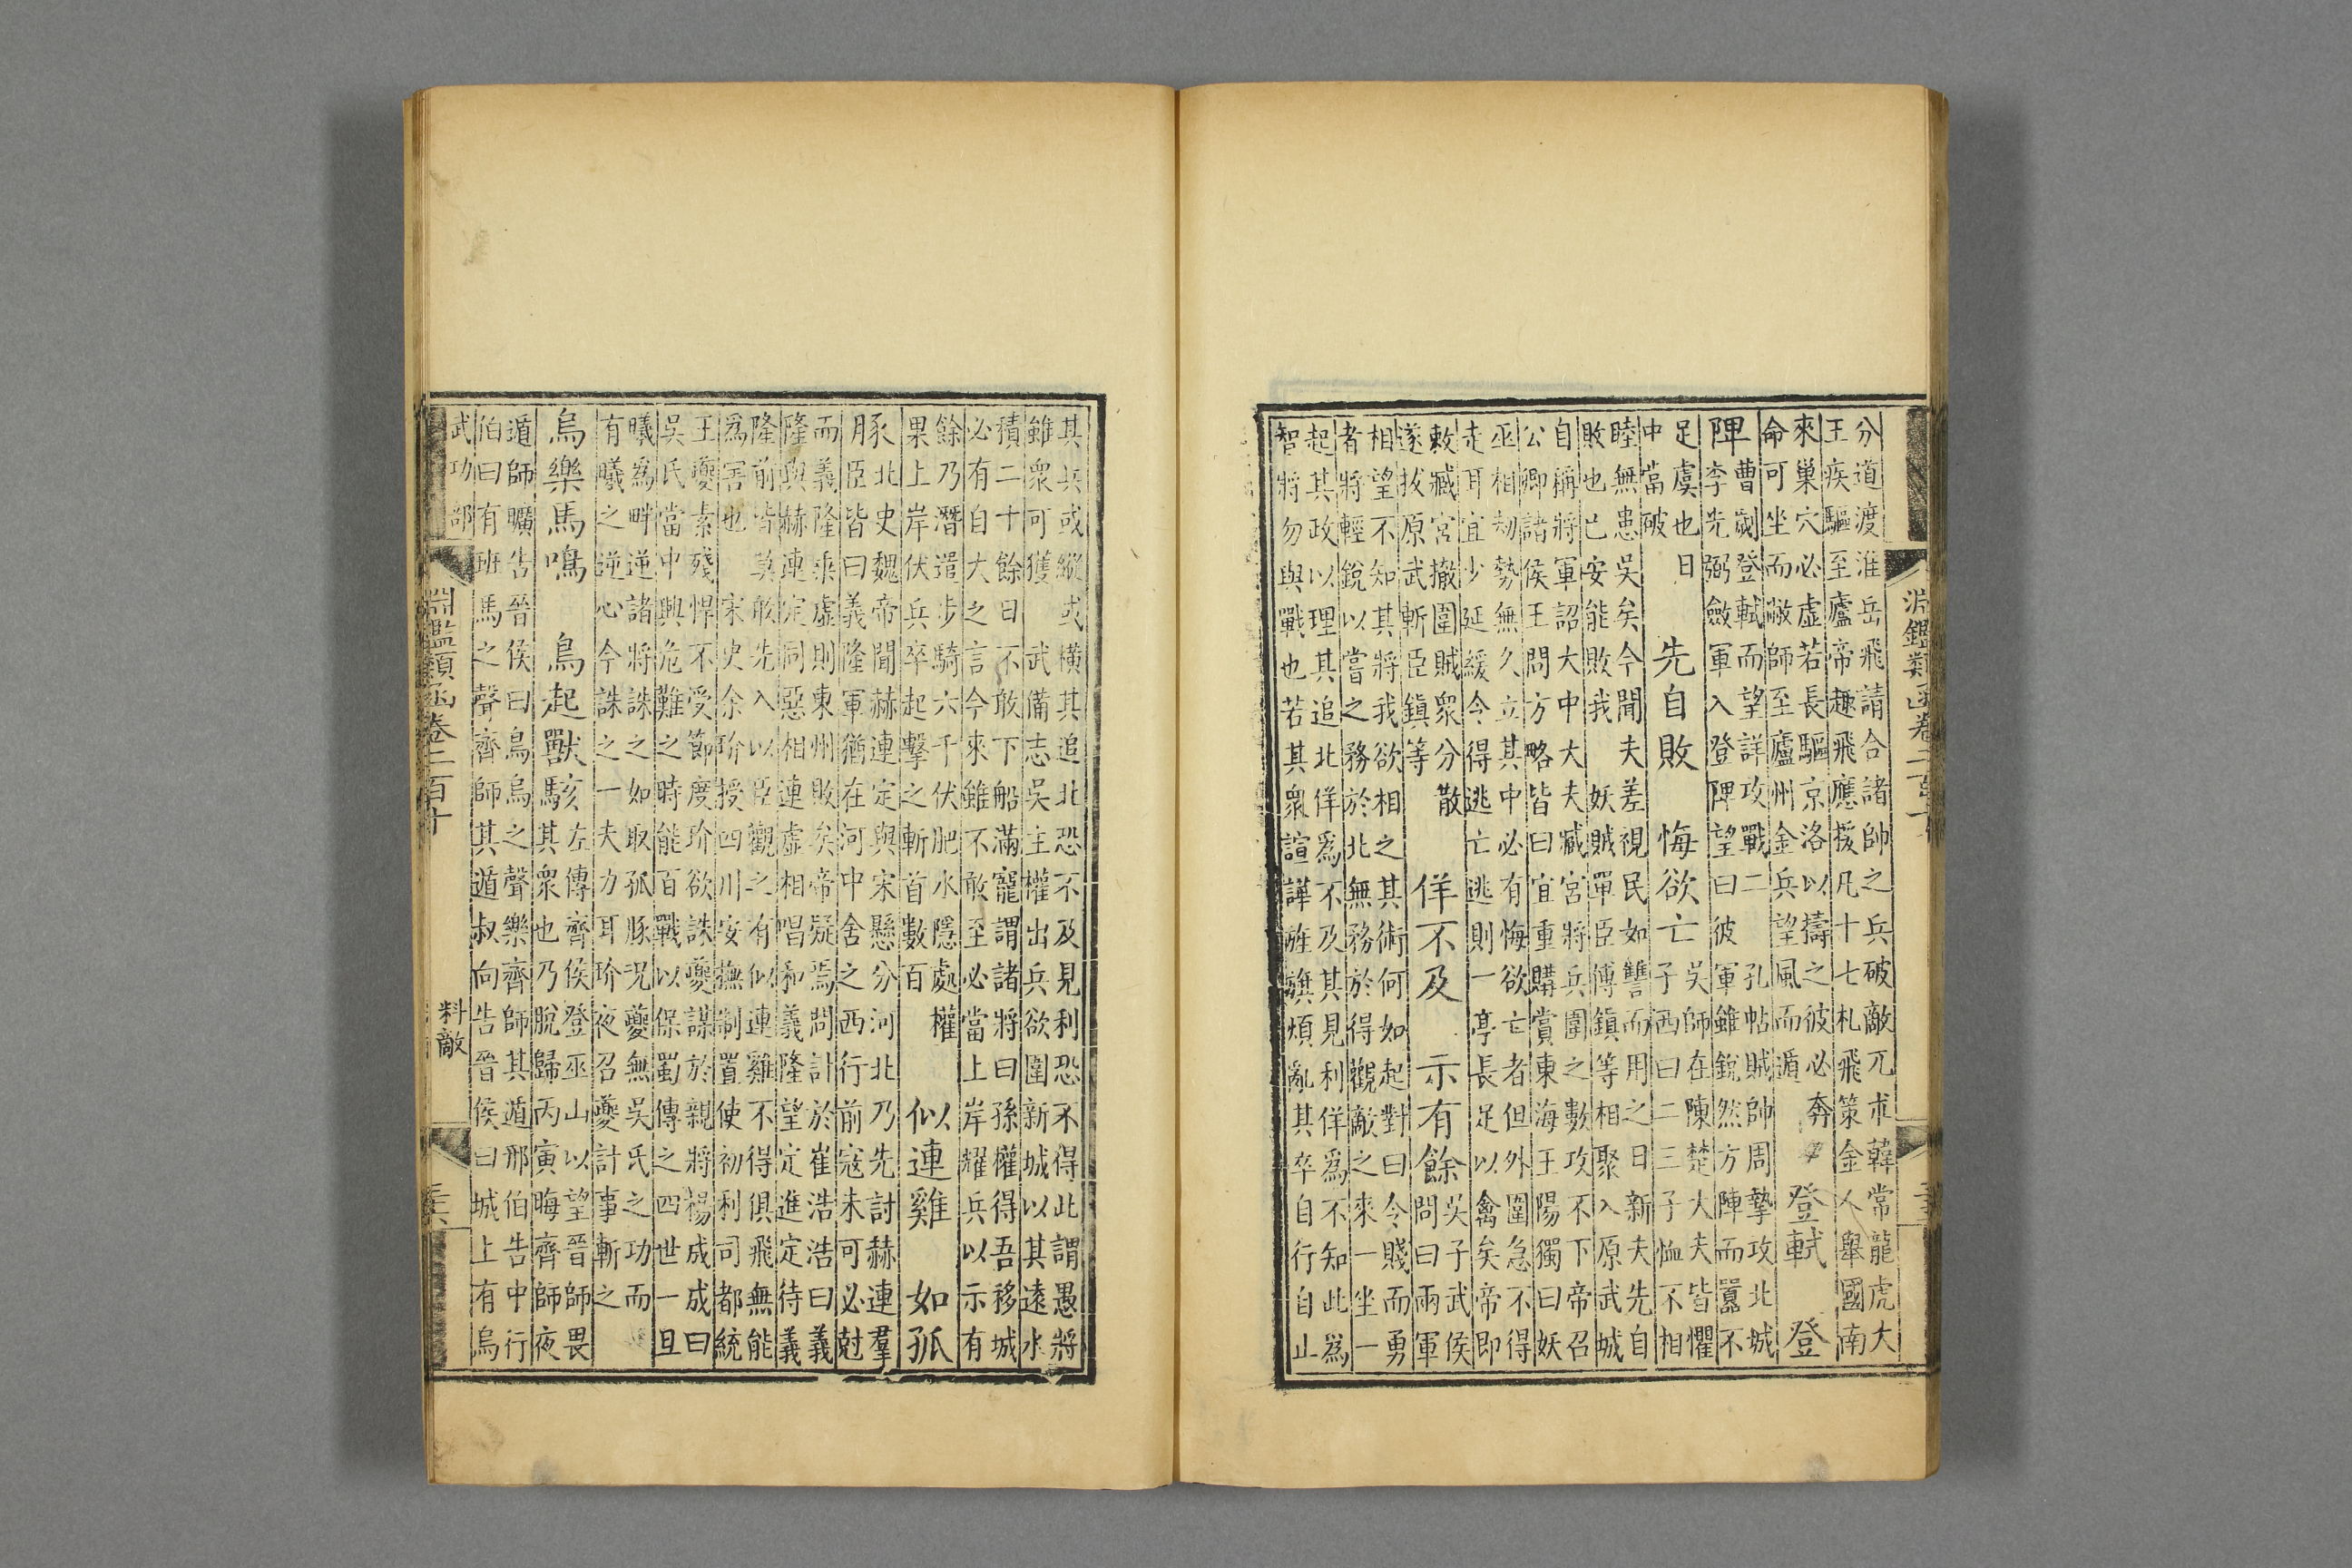 淵鑑類函卷二百十
分道渡淮岳飛請合諸帥之兵破敵兀朮韓常龍虎大
王疾驅至廬帝趣飛應援凡十七札飛策金人舉國南
來巢穴必虛若長驅京洛以擣之彼必奔
命可坐而敝師至廬州金兵望風而遁
登軾 登
陴
曹劌登軾而望詳攻戰二 孔帖賊帥周摯攻北城
李光弼斂軍入登陴望曰彼軍雖銳然方陣而囂不
足虞也日
中當破
先自敗 悔欲亡
吳師在陳楚大夫皆懼
子西曰二三子恤不相
睦無患吳矣今聞夫差視民如讐而用之日新夫先自
敗也已安能敗我 妖賊單臣傅鎮等相聚入原武城
自稱將軍詔大中大夫臧宮將兵圍之數攻不下帝召
公卿諸侯王問方略皆曰宜重購賞東海王陽獨曰妖
巫相刼勢無久立其中必有悔欲亡者但外圍急不得
走耳宜少延緩令得逃亡逃則一亭長足以禽矣帝即
敕臧宮撤圍賊衆分散
遂拔原武斬臣鎮等
佯不及 示有餘
吳子武侯
問曰兩軍
相望不知其將我欲相之其術何如起對曰令賤而勇
者將輕銳以嘗之務於北無務於得觀敵之來一坐一
起其政以理其追北佯為不及其見利佯為不知此為
智將勿與戰也若其衆諠譁旌旗煩亂其卒自行自止
其兵或縱或橫其追北恐不及見利恐不得此謂愚將
雖衆可獲 武備志吳主權出兵欲圍新城以其遠水
積二十餘日不敢下船滿寵謂諸將曰孫權得吾移城
必有自大之言今來雖不敢至必當上岸耀兵以示有
餘乃潛遣步騎六千伏肥水隱處權
果上岸伏兵卒起擊之斬首數百
似連雞 如孤
豚
北史魏帝聞赫連定與宋懸分河北乃先討赫連羣
臣皆曰義隆軍猶在河中舍之西行前寇未可必尅
而義隆乘虛則東州敗矣帝疑焉問計於崔浩浩曰義
隆與赫連定同惡相連虛相唱和義隆望定進定待義
隆前皆莫敢先入以臣觀之有似連雞不得俱飛無能
為害也 宋史余玠授四川安撫制置使初利司都統
王夔素殘悍不受節度玠欲誅夔謀於親將楊成成曰
吳氏當中興危難之時能百戰以保蜀傳之四世一旦
曦為畔逆諸將誅之如取孤豚況夔無吳氏之功而
有曦之逆心今誅之一夫力耳玠夜召夔計事斬之
烏樂馬鳴 鳥起獸駭
左傳齊侯登巫山以望晉師畏
其衆也乃脫歸丙寅晦齊師夜
遁師曠告晉侯曰鳥烏之聲樂齊師其遁邢伯告中行
伯曰有班馬之聲齊師其遁叔向告晉侯曰城上有烏
武功部
淵鑑類函卷二百十
料敵